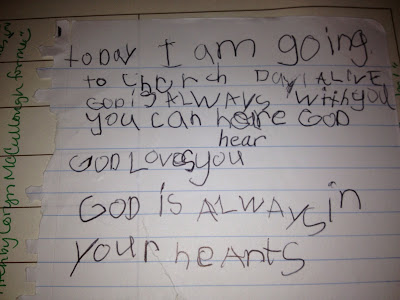 today I am going
to Church DaylALIVE
GOD is ALWAYS with you
you can hore GOD
hear
GOD LOVES you
GOD is ALWAYS in
your hearts
by Caryn McCullough for me